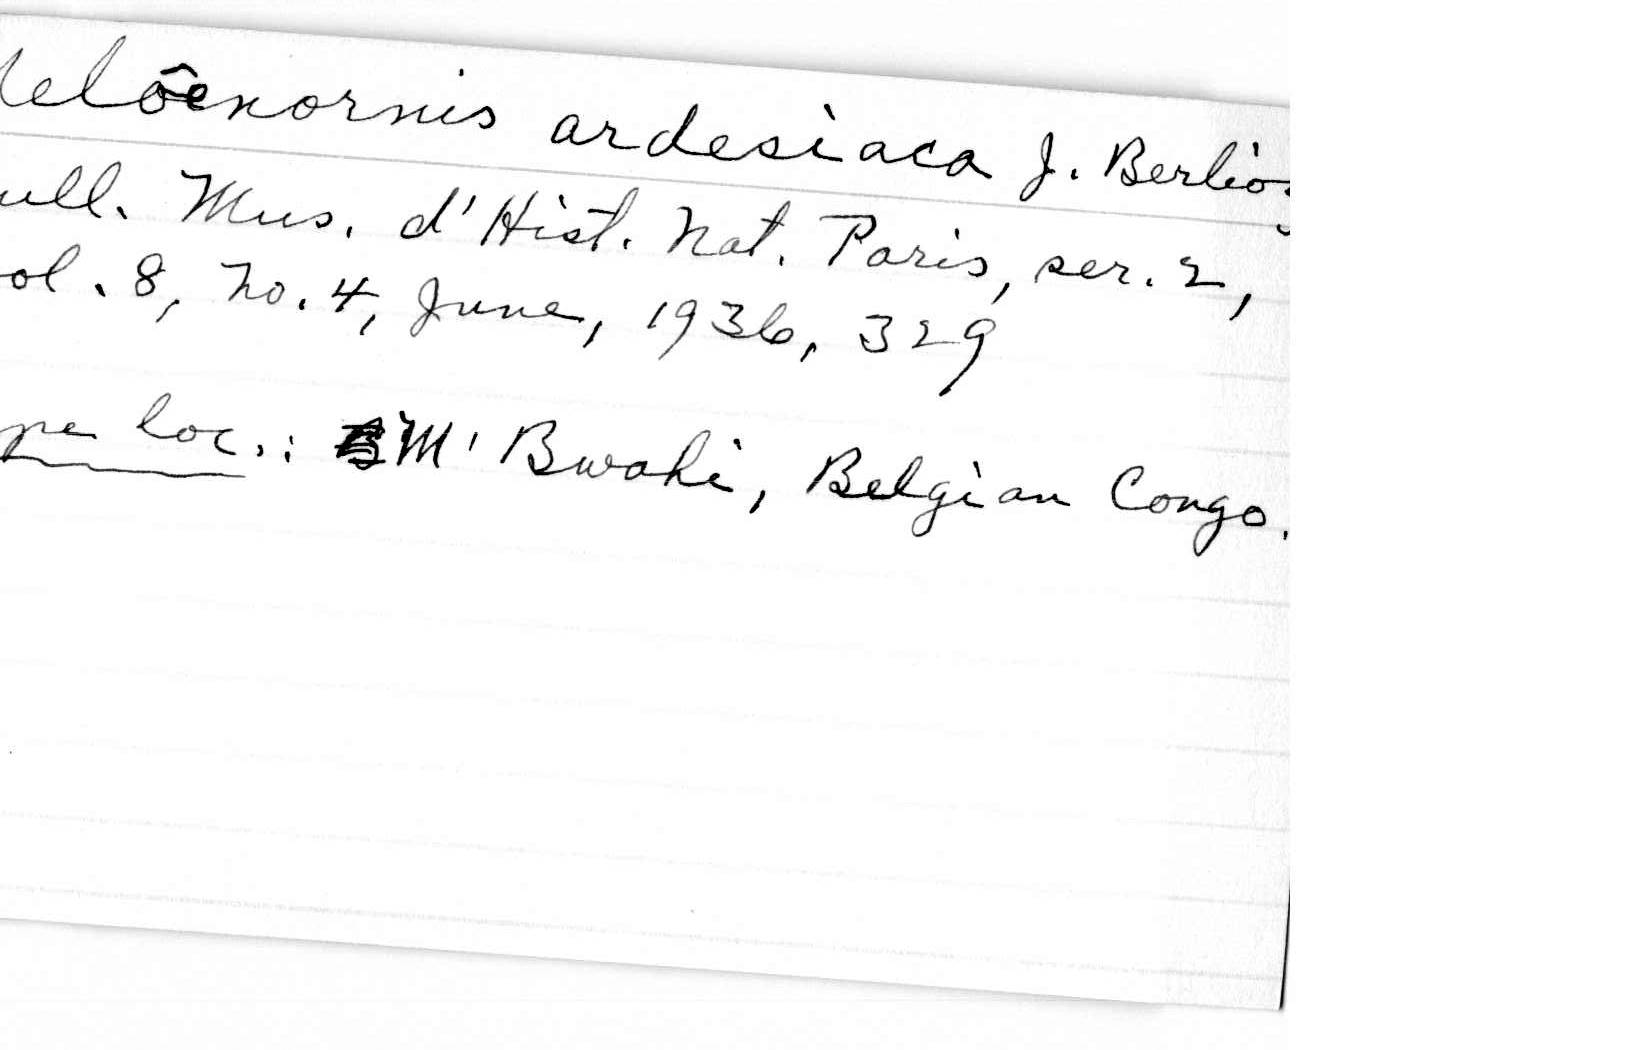 elôenornis ardesiaca J. Berlioz
ull. Mus. d'Hist. Nat. Paris, ser. 2,
ol. 8, No. 4, June, 1936, 329
pe loc.: M' Bwahi, Belgian Congo.